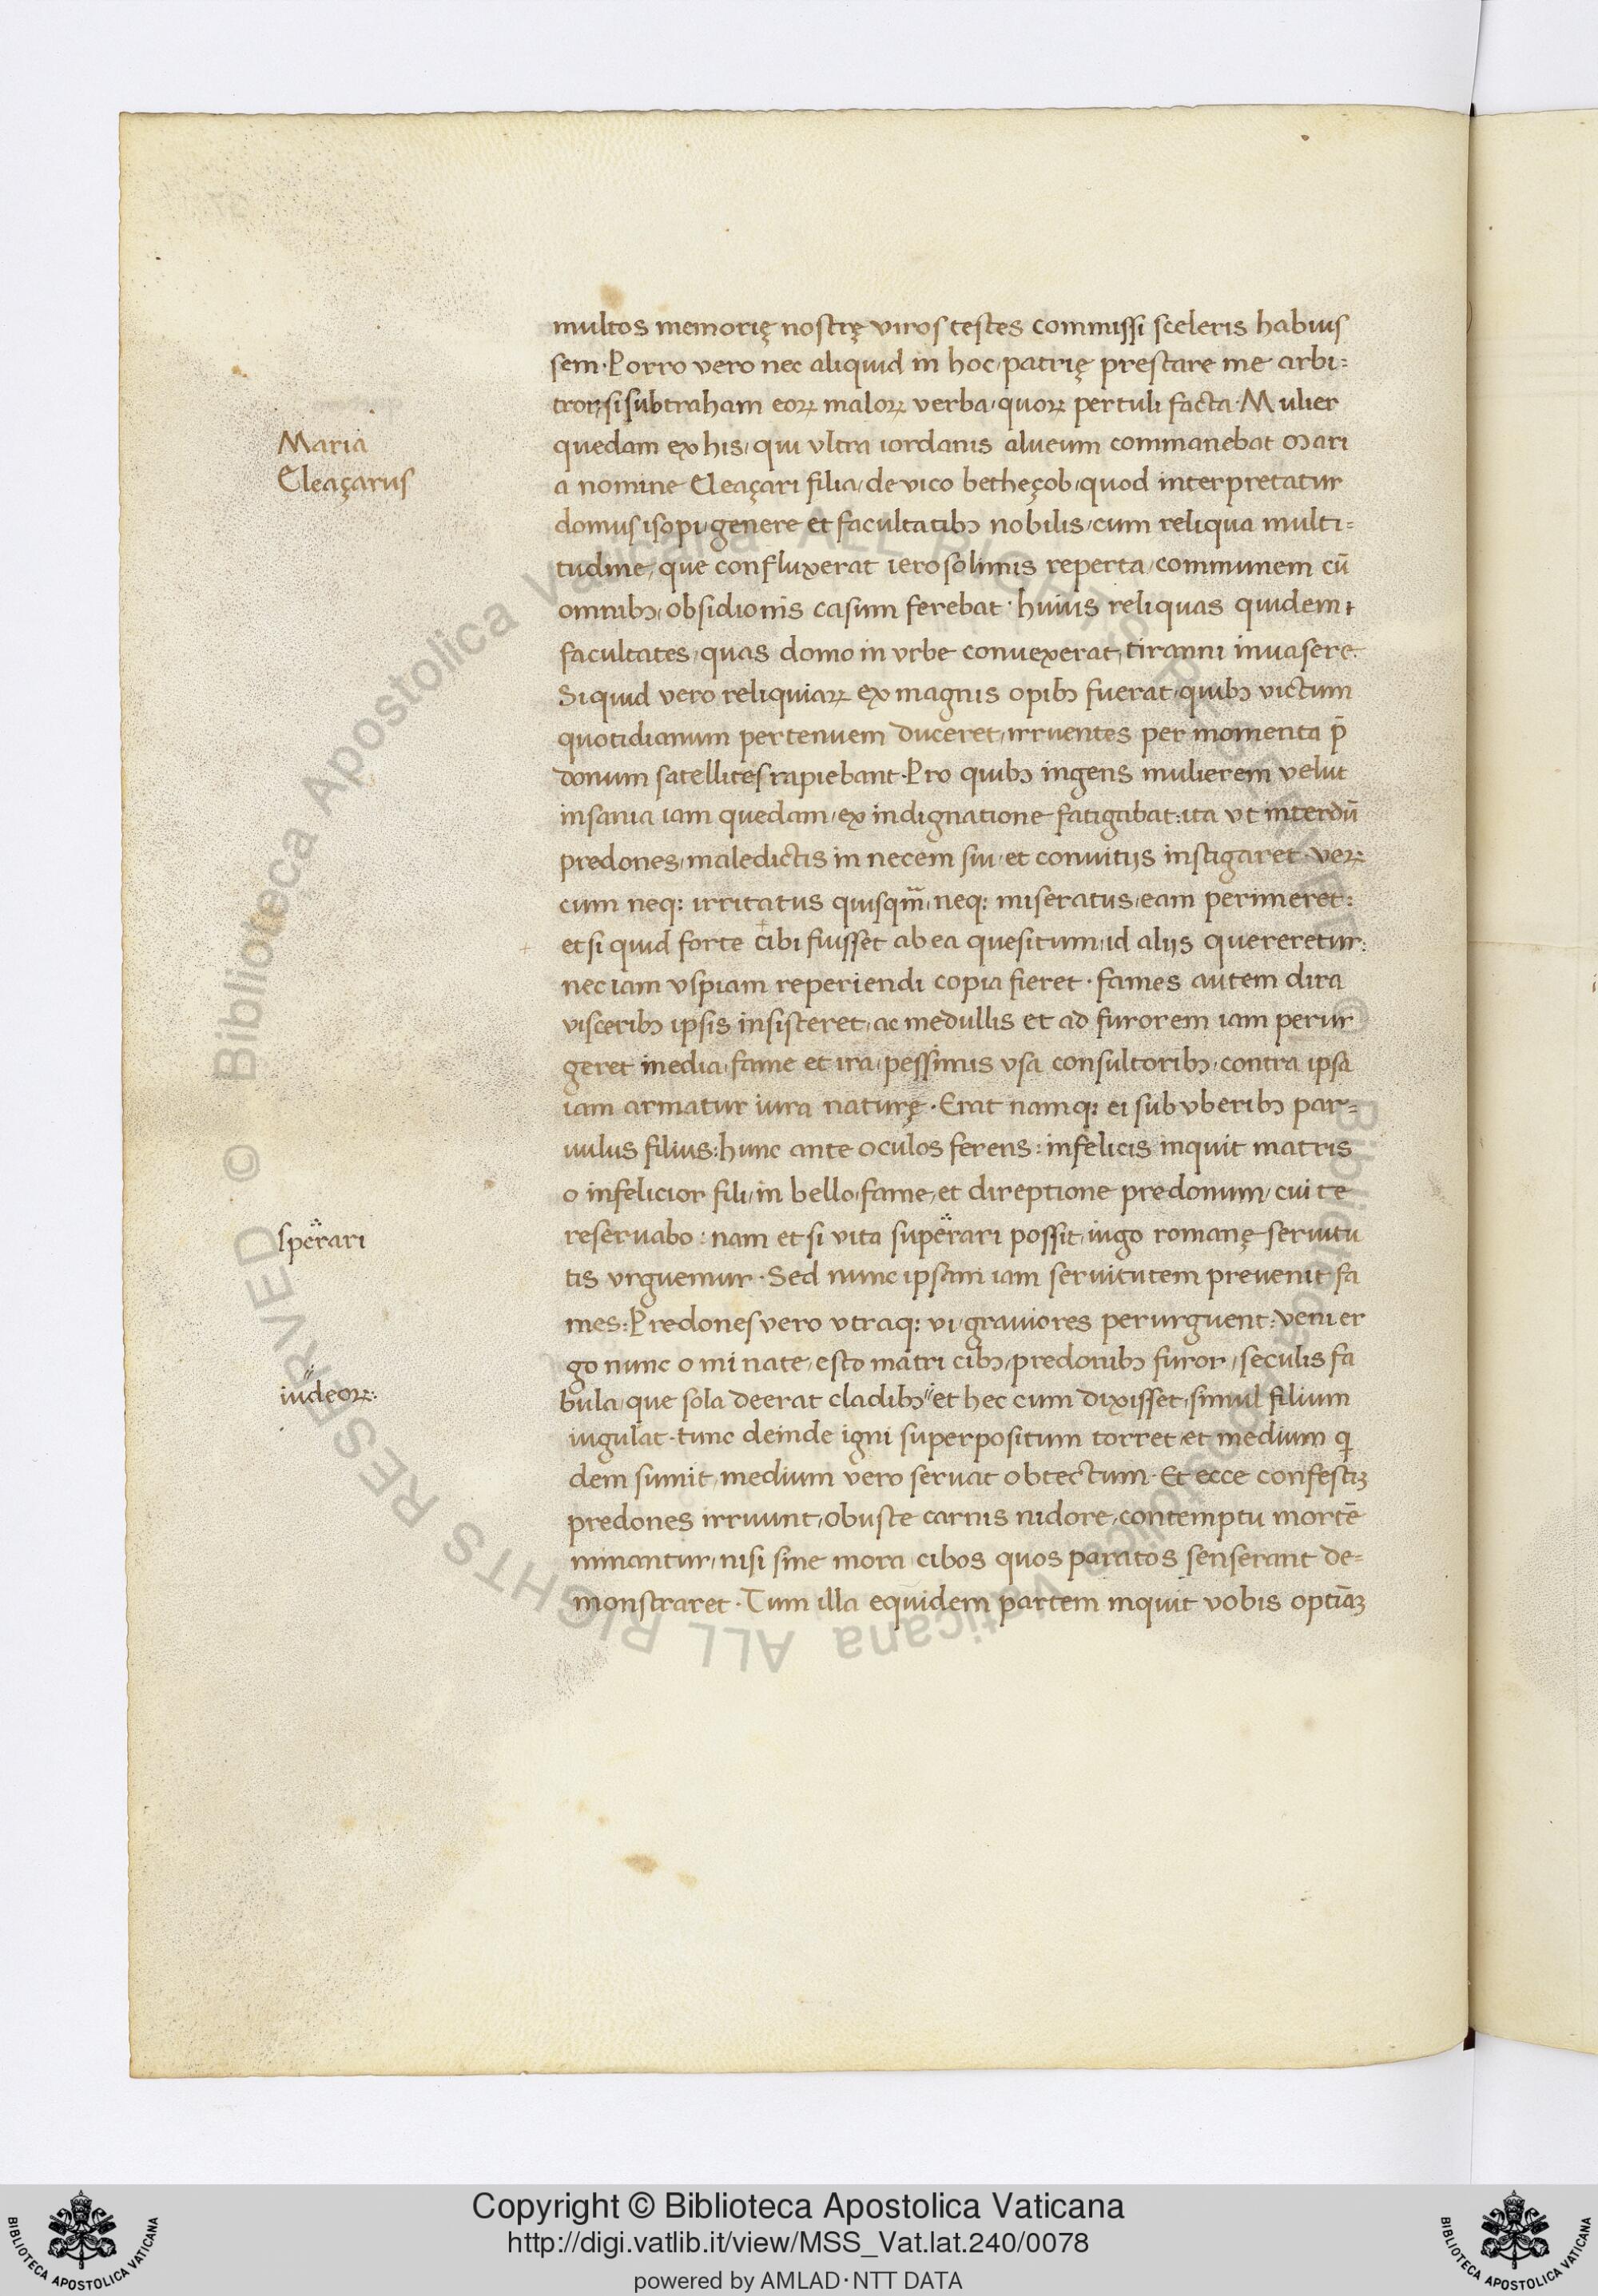 multos memorię nostrę viros testes commissi sceleris habuis
sem · Porro vero nec aliquid in hoc / patrię prestare me arbi=
tror, si subtraham eoꝝ maloꝝ verba / quoꝝ pertuli facta · Mulier
Maria
quedam ex his / qui vltra iordanis alueum commanebat Mari
Eleaçarus
a nomine Eleaçari filia / de vico betheçob / quod interpretatur
domus isopi / genere et facultatibꝫ nobilis / cum reliqua multi=
tudine / que confluxerat ierosolimis reperta / communem cū
omnibꝫ / obsidionis casum ferebat · huius reliquas quidem
facultates / quas domo in vrbe conuexerat, tiranni inuasere.
Siquid vero reliquiaꝝ ex magnis opibꝫ fuerat / quibꝫ victum
quotidianum per tenuem duceret / irruentes per momenta p̄
donum satellites rapiebant · Pro quibꝫ ingens mulierem velut
insania iam quedam / ex indignatione fatigabat : ita vt interdū
predones / maledictis in necem sui / et conuitijs instigaret · veꝝ
cum neq: irritatus quisqm̄ / neq: miseratus / eam perimeret :
et si quid forte cibi fuisset ab ea quesitum / id alijs quereretur :
nec iam vspiam reperiendi copia fieret · fames autem dira
visceribꝫ ipsis insisteret / ac medullis et ad furorem iam perur
geret inedia / fame et ira / pessimis vsa consultoribꝫ / contra ipsa
iam armatur iura naturę · Erat namq: ei sub vberibꝫ par=
uulus filius : hunc ante oculos ferens : infelicis inquit matris
o infelicior fili / in bello / fame / et direptione predonum / cui te
sperari
reseruabo : nam et si vita superari possit / iugo romanę seruitu
tis vrguemur · Sed nunc ipsam iam seruitutem preuenit fa
mes : Predones vero vtraq: vi / grauiores perurguent : veni er
go nunc o mi nate / esto matri cibꝫ / predonibꝫ furor / seculis fa
iudeoꝝ :
bula / que sola deerat cladibꝫ et hec cum dixisset / simul filium
iugulat · tunc deinde igni superpositum torret / et medium qi
dem sumit / medium vero seruat obtectum · Et ecce confestiꝫ
predones irruunt / obuste carnis nidore / contemptu mortē
minantur / nisi sine mora cibos quos paratos senserant de=
monstraret · Tum illa equidem partem inquit vobis optiāꝫ
© Biblioteca Apostolica Vaticana ALL RIGHTS RESERVED
© Biblioteca Apostolica Vaticana ALL RIGHTS RESERVED
Copyright © Biblioteca Apostolica Vaticana
http://digi.vatlib.it/view/MSS_Vat.lat.240/0078
powered by AMLAD · NTT DATA
BIBLIOTECA APOSTOLICA VATICANA
BIBLIOTECA APOSTOLICA VATICANA